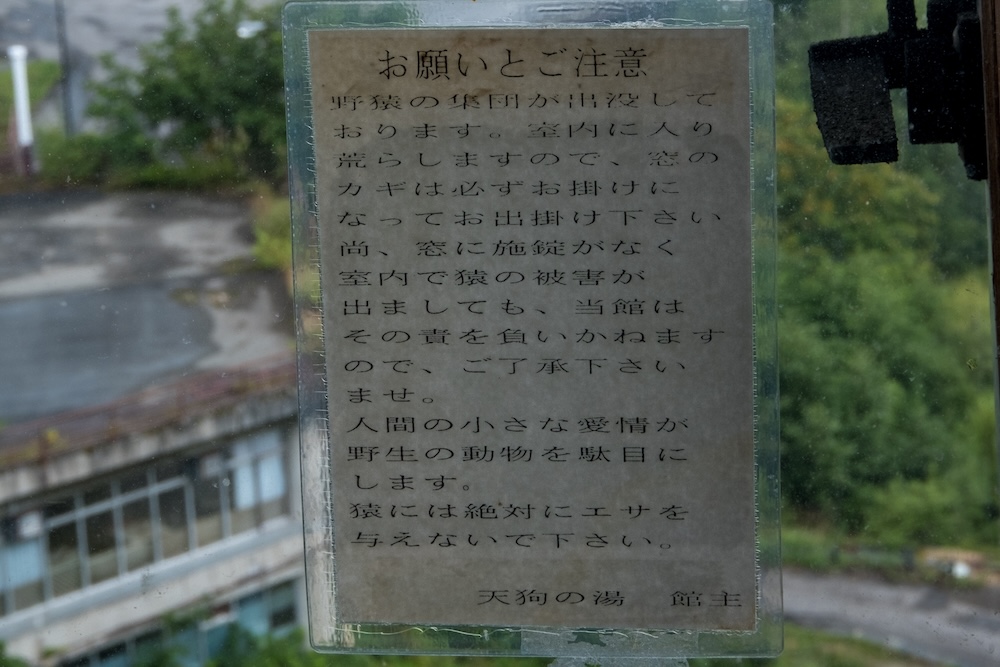 お願いとご注意
野猿の集団が出没して
おります。室内に入り
荒らしますので、窓の
カギは必ずお掛けに
なってお出掛け下さい
尚、窓に施錠がなく
室内で猿の被害が
出ましても、当館は
その責を負いかねます
ので、ご了承下さい
ませ。
人間の小さな愛情が
野生の動物を駄目に
します。
猿には絶対にエサを
与えないで下さい。
天狗の湯　館主